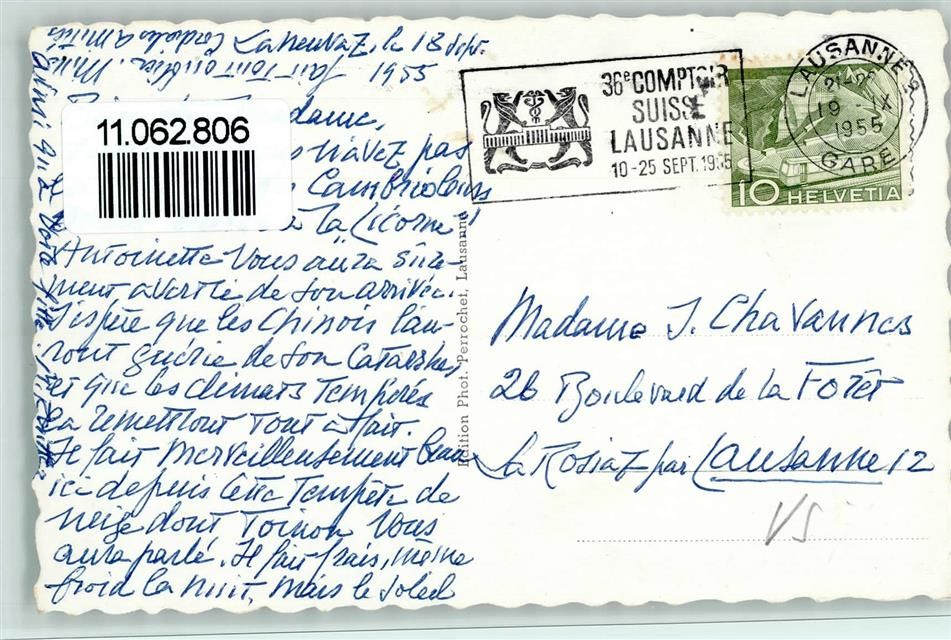 18 Sept.
1955
11.062.806
dame,
n'avez pas
Cambrioleurs
à la Licorne!
Antoinette vous aura sûre-
ment avertie de son arrivée.
J'espère que les Chinois l'au-
ront guérie de son Catarrhe,
et que les climats tempérés
la remettront tout à fait.
Il fait merveilleusement beau
ici depuis cette tempête de
neige dont Toinon vous
aura parlé. Il fait frais, même
froid la nuit, mais le soleil
ainsi que votre fille
Edition Phot. Perrochet, Lausanne
36e COMPTOIR
SUISSE
LAUSANNE
10-25 SEPT. 1955
LAUSANNE 2
19 -IX
1955
GARE
10 HELVETIA
Madame J. Chavannes
26 Boulevard de la Forêt
La Rosiaz par Lausanne 12
VS